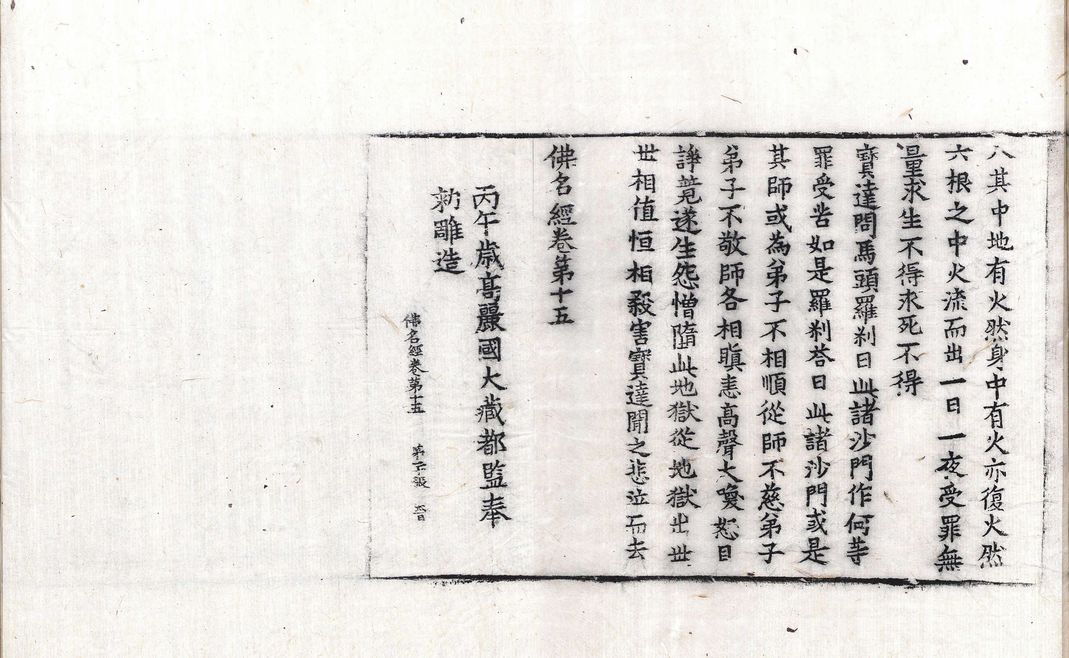 八其中地有火然身中有火亦復火然
六根之中火流而出一日一夜受罪無
量求生不得求死不得
寶達問馬頭羅刹曰此諸沙門作何等
罪受苦如是羅刹荅曰此諸沙門或是
其師或為弟子不相順從師不慈弟子
弟子不敬師各相瞋恚高聲大喚怒目
諍競遂生怨憎墮此地獄從地獄出世
世相值恒相殺害寶達聞之悲泣而去
佛名經卷第十五
丙午歲高麗國大藏都監奉
勑雕造
佛名經卷第十五 第 張 晉